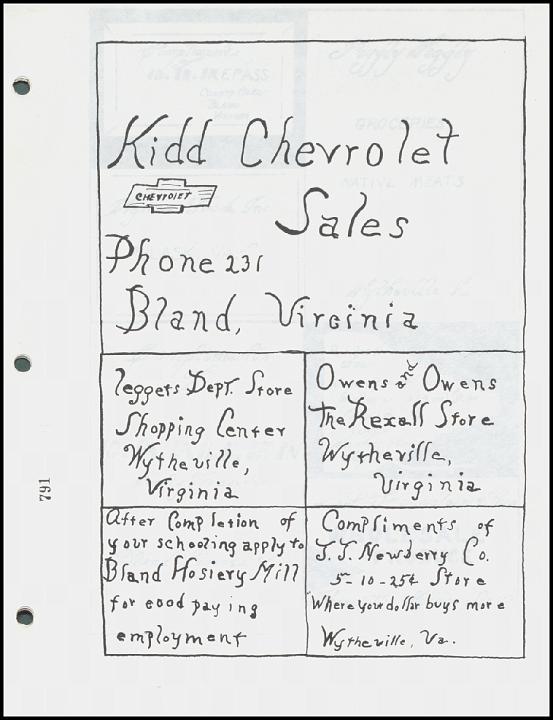 Kidd Chevrolet
CHEVROLET
Sales
Phone 231
Bland, Virginia
leggets Dept. Store
Shopping Center
Wytheville,
Virginia
Owens and Owens
The Rexall Store
Wytheville,
Virginia
After Completion of
your schooling apply to
Bland Hosiery Mill
for good paying
employment
Compliments of
J.J. Newberry Co.
5-10-25¢ Store
Where your dollar buys more
Wytheville, Va.
791
GROCERIES
NATIVE MEATS